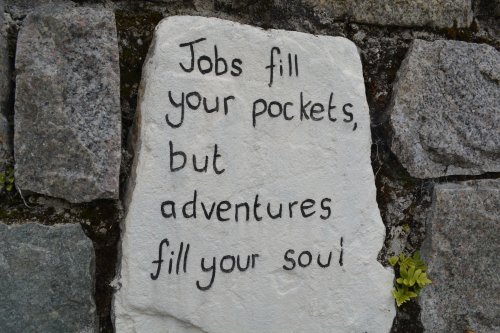 Jobs fill
your pockets,
but
adventures
fill your soul